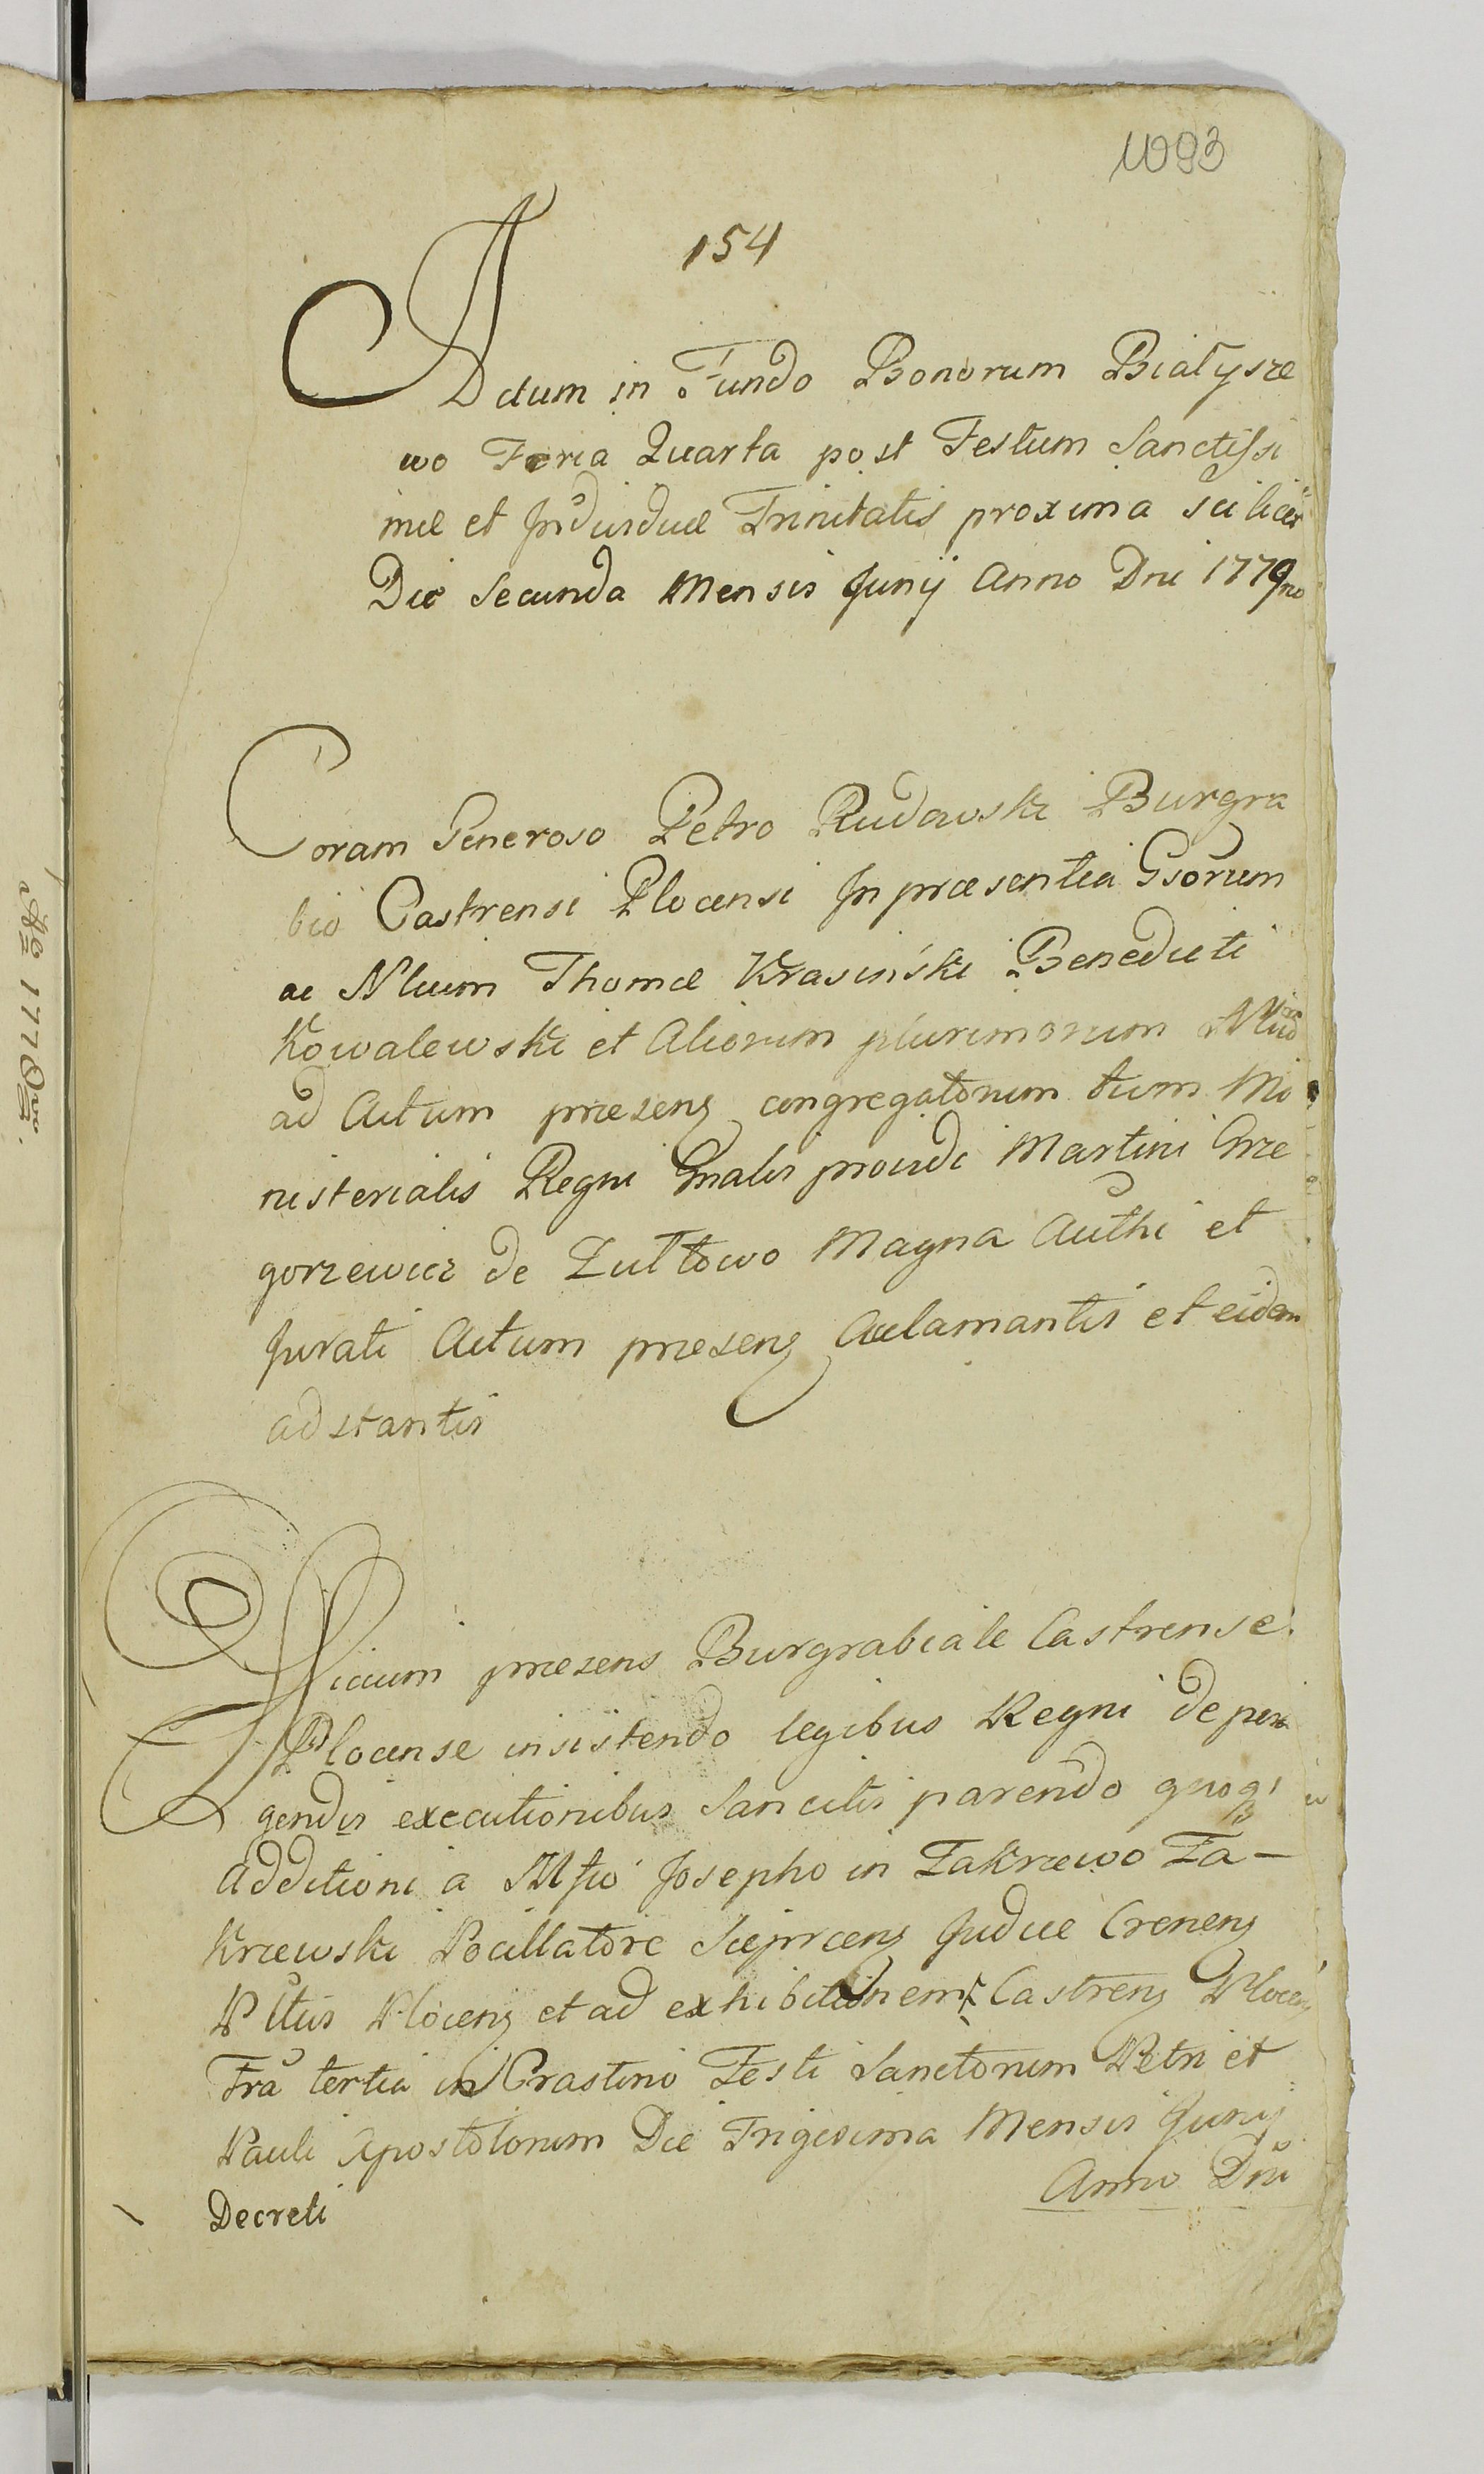 1093
154
Actum in Fundo Bonorum Białysze
wo Feria Quarta post Festum Sanctissi
mæ et Individuæ Trinitatis proxima scilicet
Die Secunda Mensis Junij Anno Dni 1779no
Coram Generoso Petro Rudowski Burgra
bio Castrensi Plocensi In præsentia Gsorum
ac Nlium Thomæ Krasiński Benedicti
Kowalewski et Aliorum plurimorum
ad Actum præsens congregatorum tum Mi
nisterialis Regni Gnalis providi Martini Grze
gorzewicz de Łułtowo Magna Authi et
Jurati Actum præsens Acclamantis et eidem
adstantis
Officium præsens Burgrabiale Castrense
Plocense insistendo legibus Regni de pera
gendis executionibus Sancitis parendo quoq
Additioni a Mfco Josepho in Zakrzewo Za-
krzewski Pocillatore Sieprcens Judice Crenens
Pttus Plocens et ad exhibitionem Castrens Plocens
Fra tertia in Crastino Festi Sanctorum Petri et
Pauli Apostolorum Die Trigesima Mensis Junij
Anno Dni
Decreti